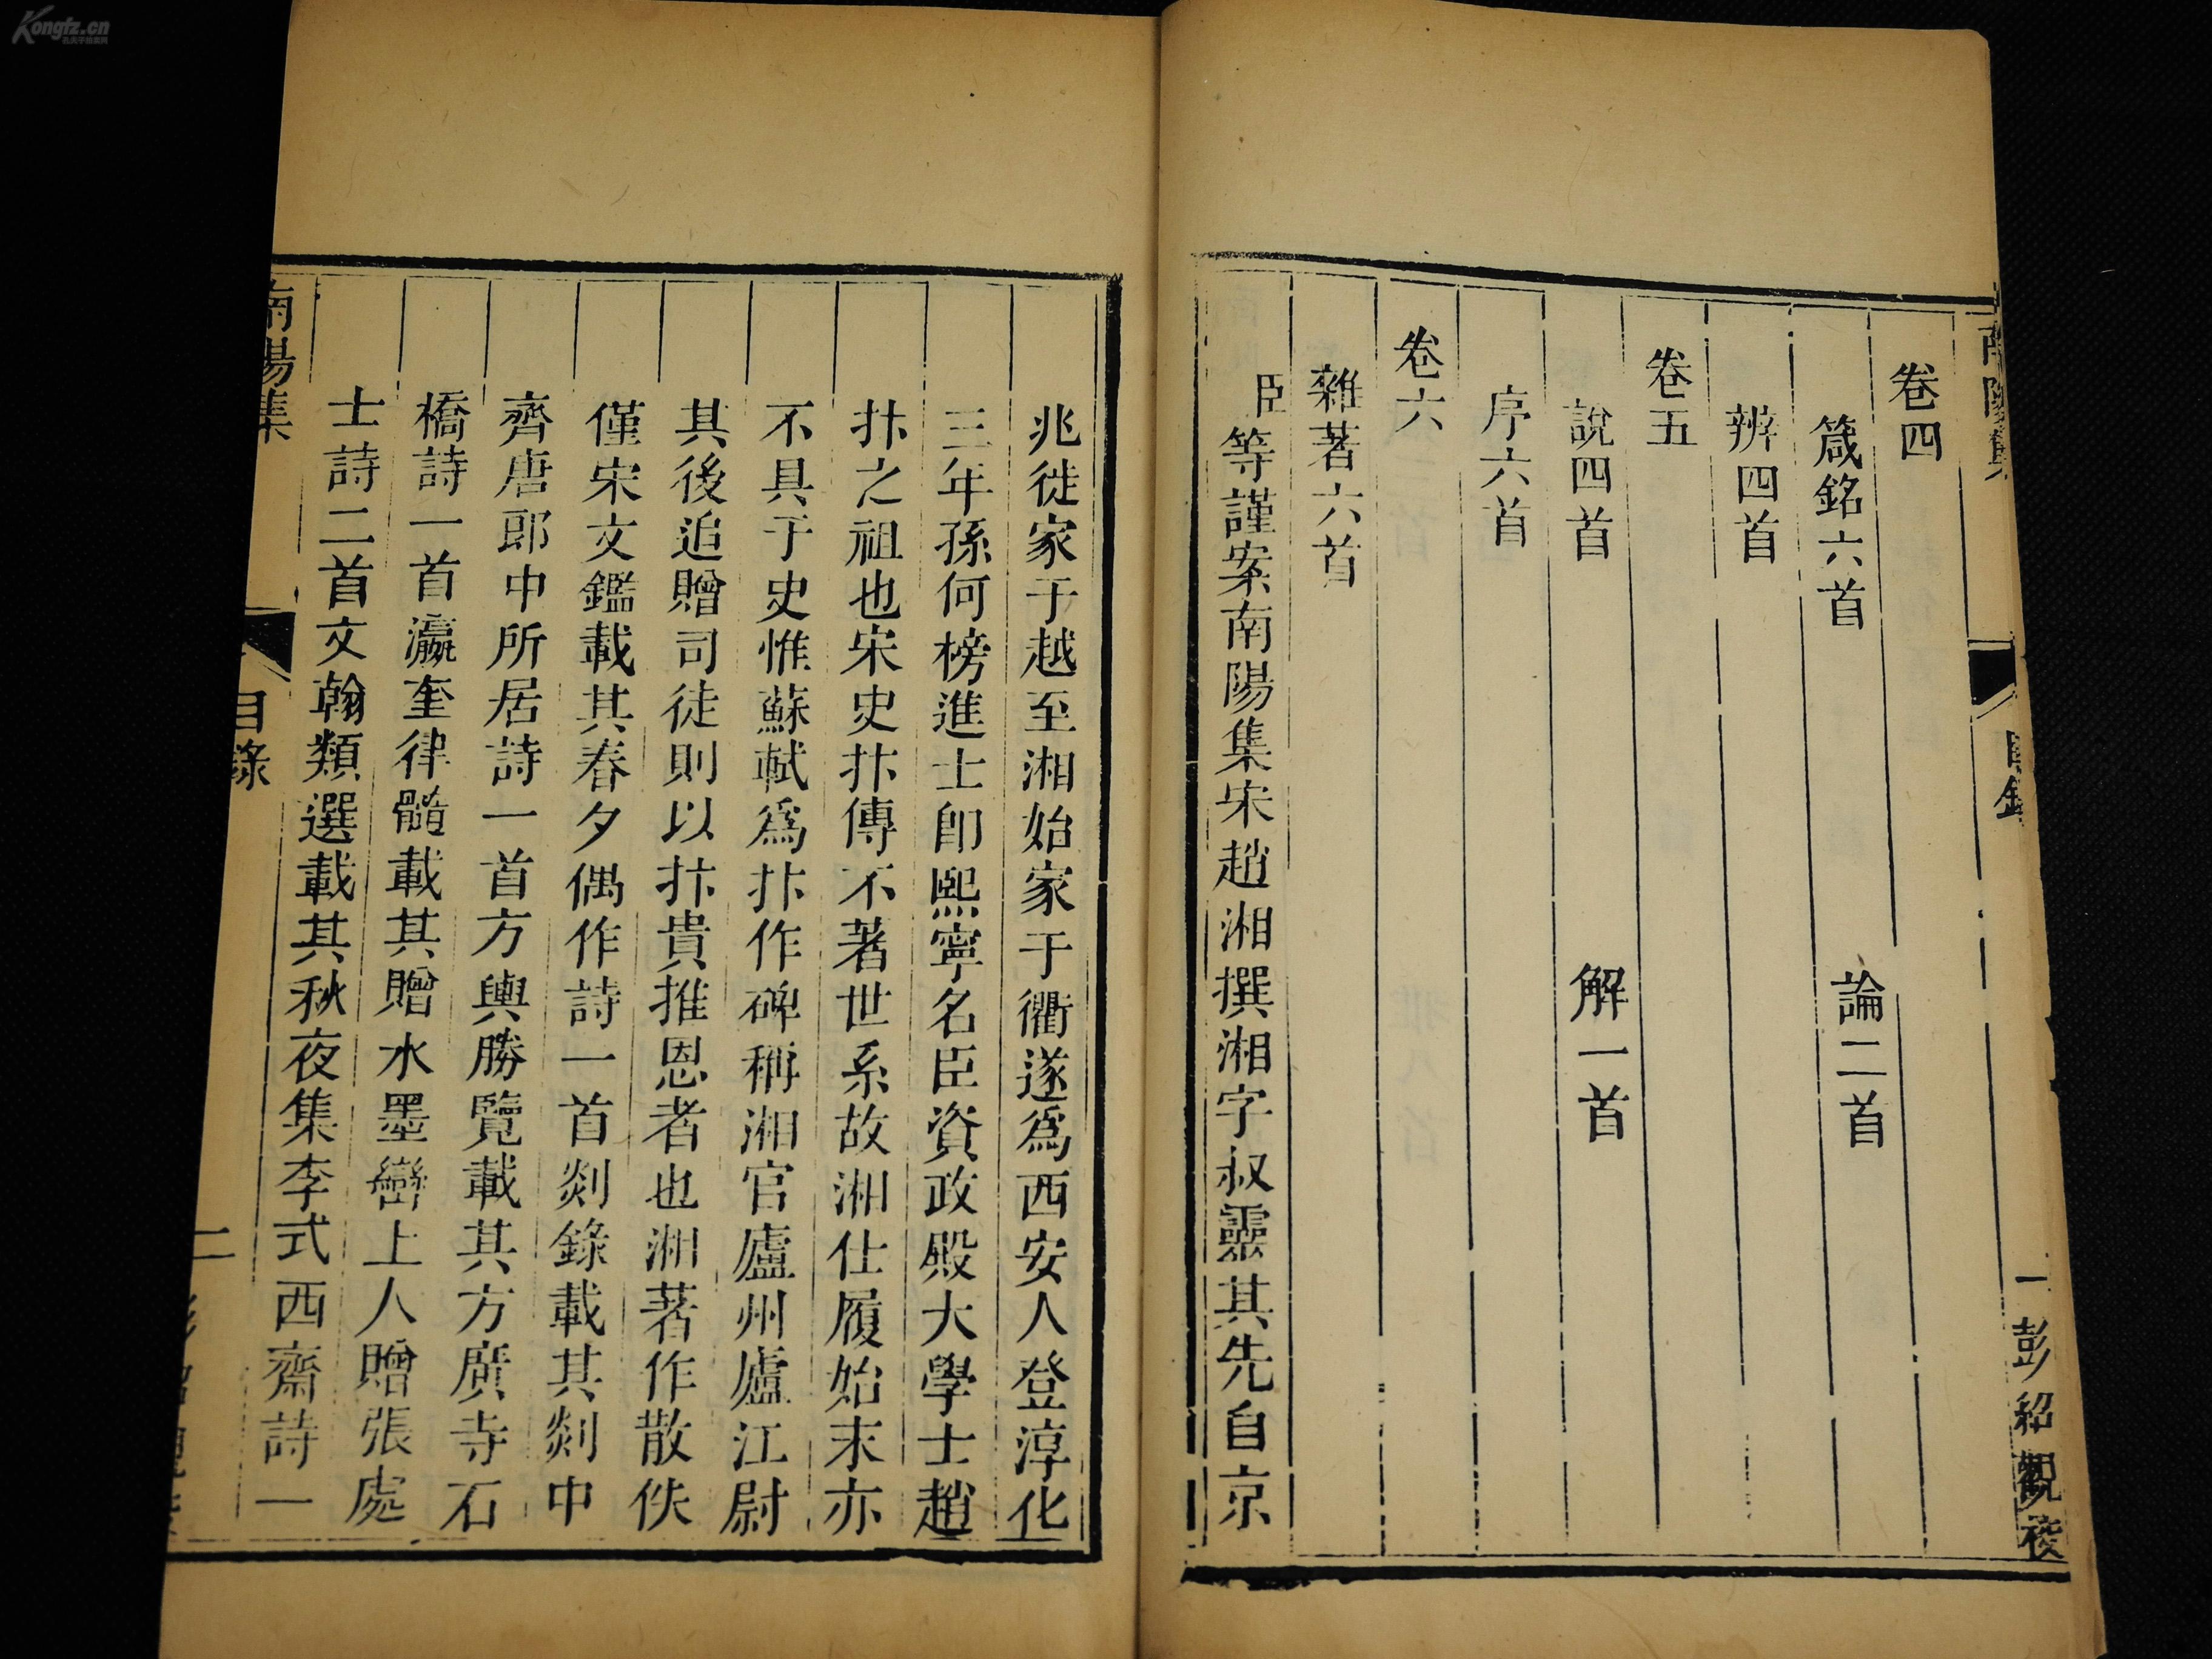 Kongfz.cn
南陽集
目錄
一
彭紹觀校
卷四
箴銘六首 論二首
辨四首
卷五
說四首 解一首
序六首
卷六
雜著六首
臣等謹案南陽集宋趙湘撰湘字叔靈其先自京
兆徙家于越至湘始家于衢遂爲西安人登淳化
三年孫何榜進士卽熙寧名臣資政殿大學士趙
抃之祖也宋史抃傳不著世系故湘仕履始末亦
不具于史惟蘇軾爲抃作碑稱湘官廬州廬江尉
其後追贈司徒則以抃貴推恩者也湘著作散佚
僅宋文鑑載其春夕偶作詩一首剡錄載其剡中
齊唐郎中所居詩一首方輿勝覽載其方廣寺石
橋詩一首瀛奎律髓載其贈水墨巒上人贈張處
士詩二首文翰類選載其秋夜集李式西齋詩一
南陽集
目錄
二